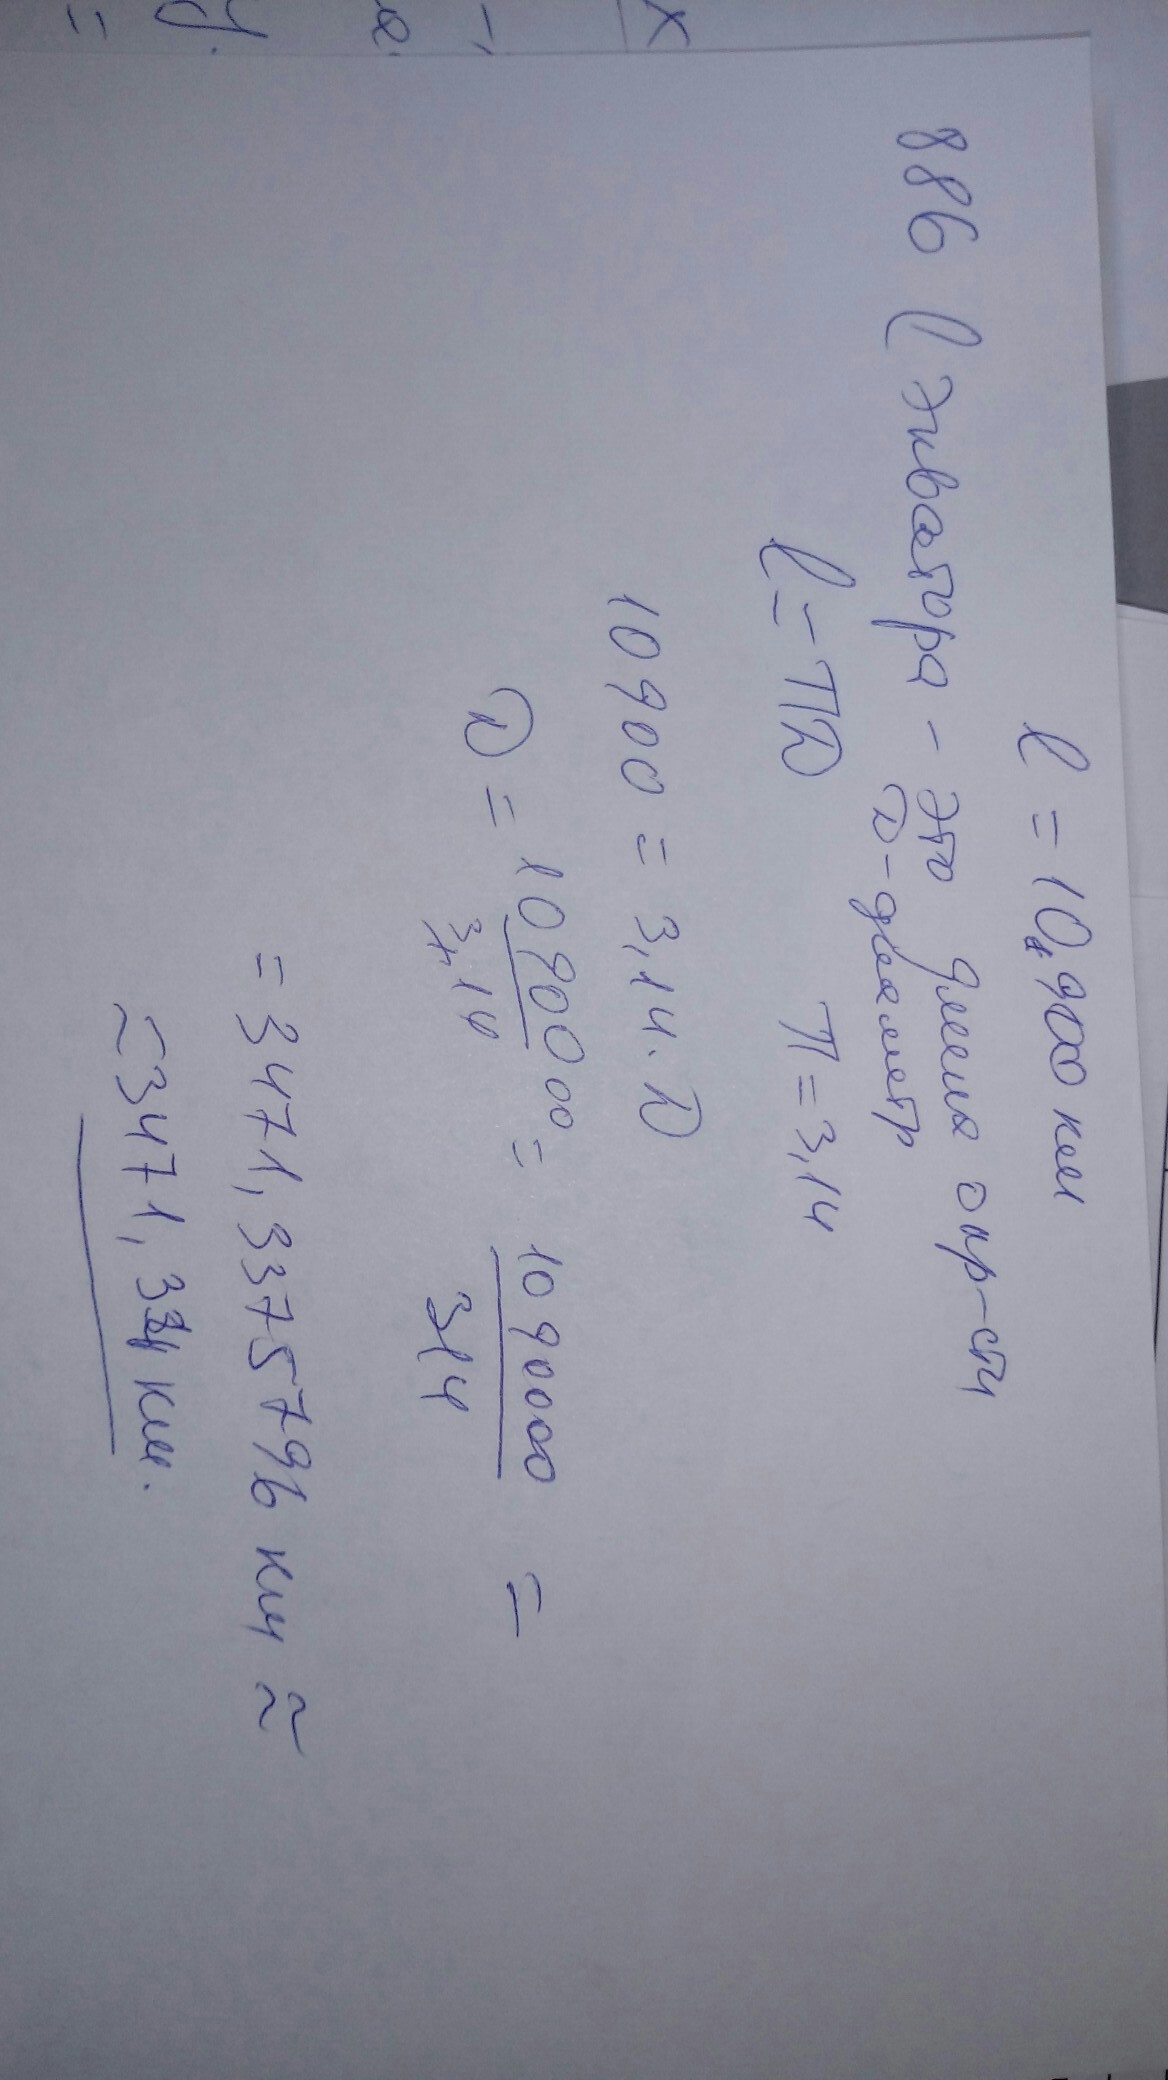 l = 10,900 км
886 l экватора - это длина окр-сти
D - диаметр
l = πD π = 3,14
10900 = 3,14 · D
D = 10900 00 / 3,14 = 1090000 / 314 =
= 3471,3375796 км ≈
≈ 3471,34 км.